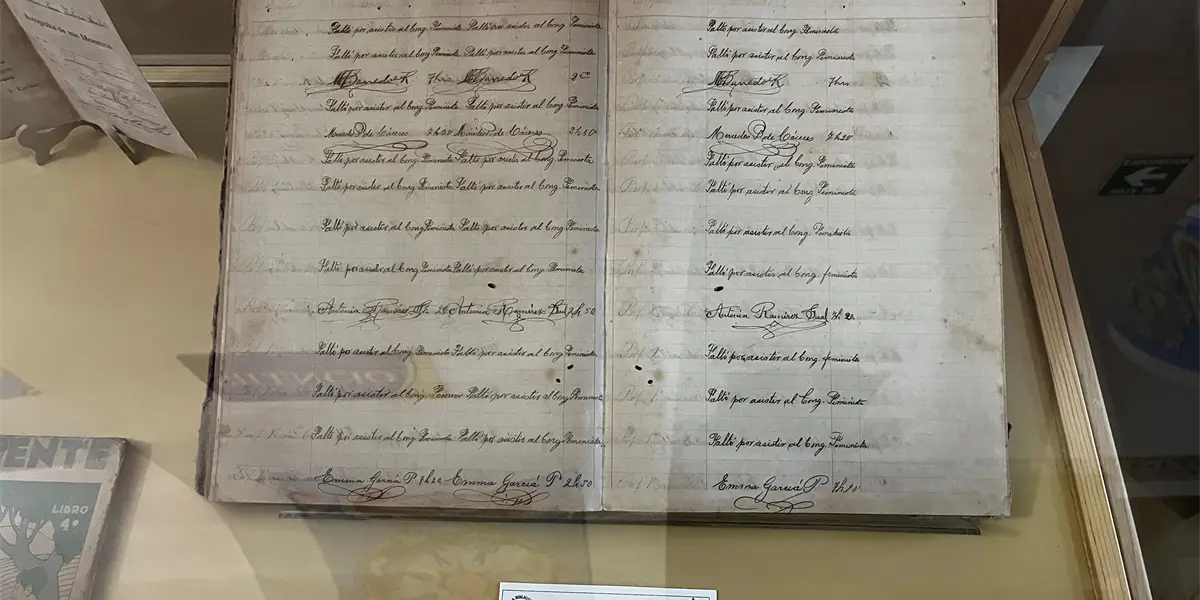 Faltó por asistir al Cong. Feminista Faltó por asistir al Cong. Feminista
Faltó por asistir al Cong. Feminista Faltó por asistir al Cong. Feminista
M Barredo K 7hrs M Barredo K
Faltó por asistir al Cong. Feminista Faltó por asistir al Cong. Feminista
Mercedes P. de Cáceres 7h20 Mercedes P. de Cáceres 2h50
Faltó por asistir al Cong. Feminista Faltó por asistir al Cong. Feminista
Faltó por asistir al Cong. Feminista Faltó por asistir al Cong. Feminista
Faltó por asistir al Cong Feminista Faltó por asistir al Cong. Feminista
Faltó por asistir al Cong Feminista Faltó por asistir al Cong. Feminista
Antonia Ramírez 7h. 20 Antonia Ramírez 2h 50
Faltó por asistir al Cong. Feminista Faltó por asistir al Cong Feminista
Faltó por asistir al Cong. Faltó por asistir al Cong. Feminista
Faltó por asistir al Cong. Feminista Faltó por asistir al Cong. Feminista
Emma García P. 7h20 Emma García P 2h50
Faltó por asistir al Cong. Feminista
Faltó por asistir al Cong. Feminista
M Barredo K 7hrs
Faltó por asistir al Cong. Feminista
Mercedes P. de Cáceres 7h20
Faltó por asistir al Cong. Feminista
Faltó por asistir al Cong. Feminista
Faltó por asistir al Cong. Feminista
Faltó por asistir al Cong. feminista
Antonia Ramírez 7h 20
Faltó por asistir al Cong. feminista
Faltó por asistir al Cong. Feminista
Faltó por asistir al Cong. Feminista
Emma García P 7h20
LIBRO
4º